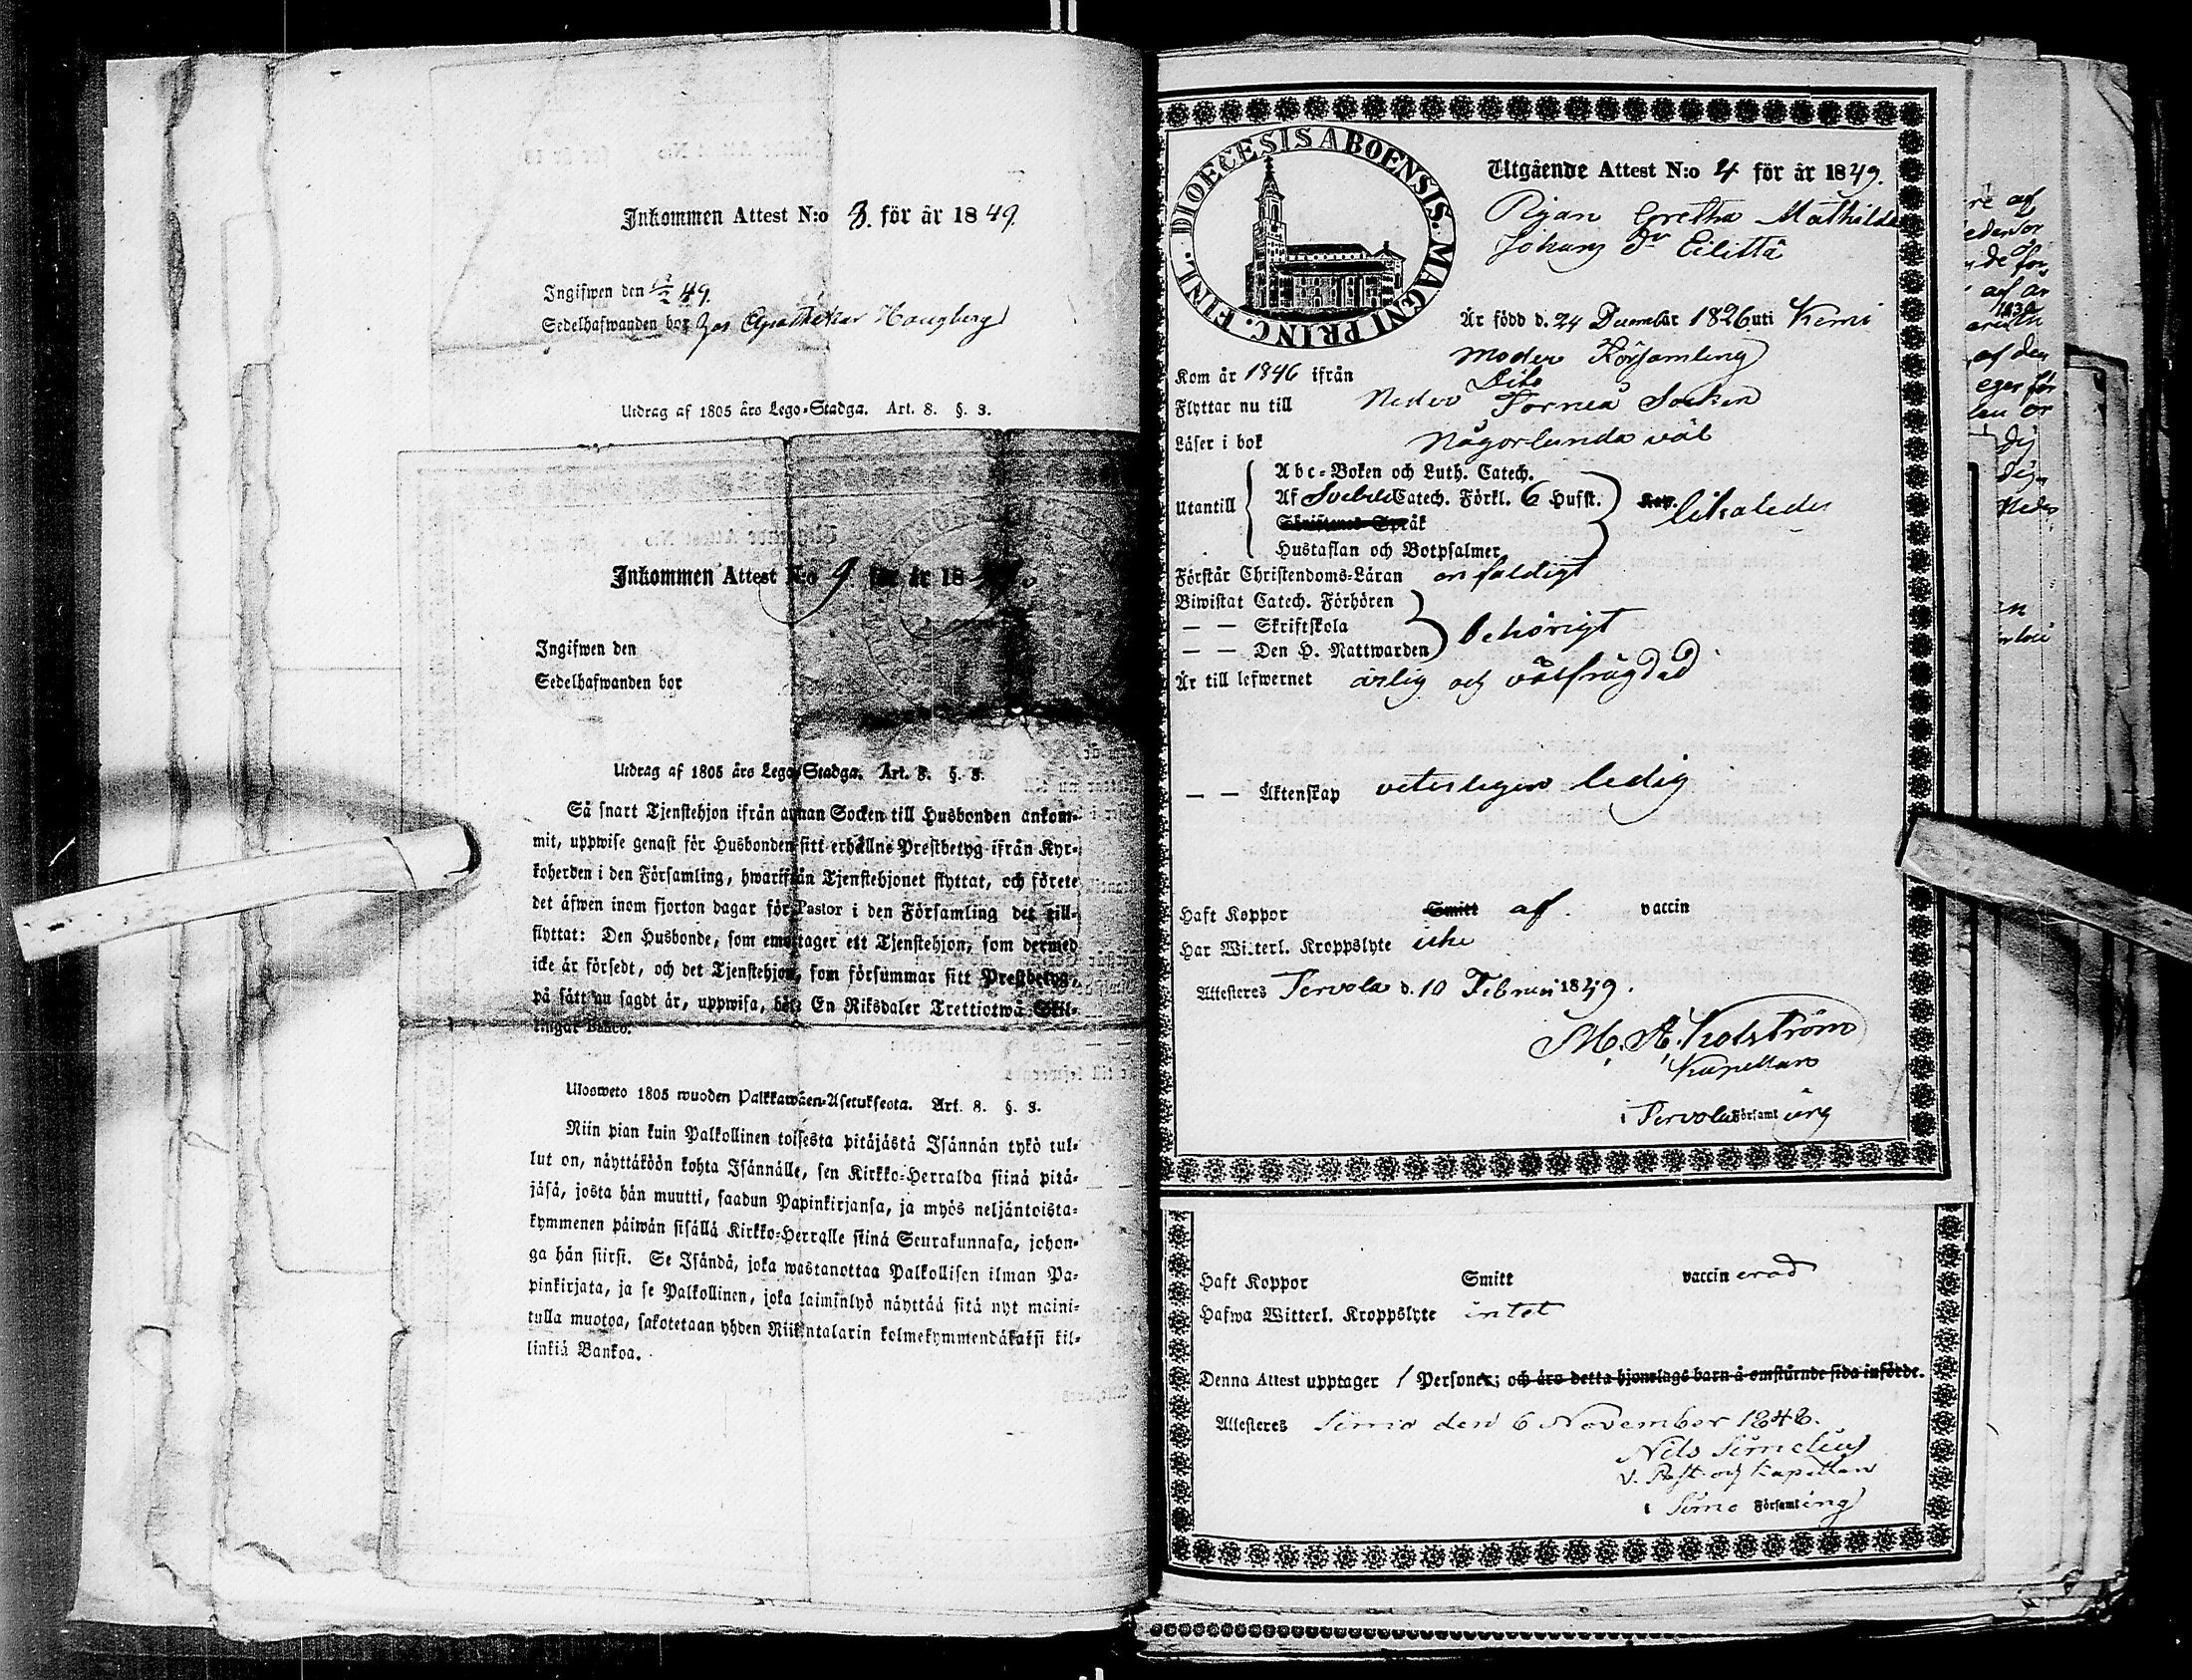 Inkommen Attest N:o 3. för år 1849.
Ingifwen den 49.
Sedelhafwanden bor hos Apothekar Haugberg
Utdrag af 1805 års Lego-Stadga. Art. 8. §. 3.
Inkommen Attest N:o 9. för år 18
Ingifwen den
Sedelhafwanden bor
Utdrag af 1805 års Lego-Stadga. Art. 8. §. 3.
Så snart Tjenstehjon ifrån annan Socken till Husbonden ankom-
mit, uppwise genast för Husbonden sitt erhållne Prestbetyg ifrån Kyr-
koherden i den Församling, hwarifrån Tjenstehjonet flyttat, och förete
det äfwen inom fjorton dagar för Pastor i den Församling det till-
flyttat: Den Husbonde, som emottager ett Tjenstehjon, som dermed
icke är försedt, och det Tjenstehjon, som försummar sitt Prestbetyg,
på sätt nu sagdt är, uppwisa, böte En Riksdaler Trettiotwå Skil-
lingar Banco.
Ulosweto 1805 wuoden Palkkawäen-Asetuksesta. Art. 8. §. 3.
Niin pian kuin Palkollinen toisesta pitäjästä Isännän tykö tul-
lut on, näyttäköön kohta Isännälle, sen Kirkko-Herralda siinä pitä-
jäsä, josta hän muutti, saadun Papinkirjansa, ja myös neljäntoista-
kymmenen päiwän sisällä Kirkko-Herralle siinä Seurakunnasa, johon-
ga hän siirsi. Se Isändä, joka wastanottaa Palkollisen ilman Pa-
pinkirjata, ja se Palkollinen, joka laiminlyö näyttää sitä nyt maini-
tulla muotoa, sakotetaan yhden Riikintalarin kolmekymmendäkaksi kil-
linkiä Bankoa.
DIOECESIS ABOENSIS. MAGNI PRINC. FINL.
Utgående Attest N:o 4 för år 1849.
Pigan Gretha Mathilda
Johans dr Eilittä
Är född d. 24 Decembr 1826 uti Kemi
Moder Församling
Kom år 1846 ifrån Dito
Flyttar nu till Neder Torneå Socken
Läser i bok någorlunda väl
Utantill
Abc-Boken och Luth. Catech.
Af Svebel Catech. Förkl. 6 Hufst.
Skriftenes Språk
Hustaflan och Botpsalmer
likaledes
Förstår Christendoms-Läran enfaldigt
Biwistat Catech. Förhören
— — Skriftskola
— — Den H. Nattwarden
behörigt
Är till lefwernet ärlig och välfrägdad
— — Äktenskap veterligen ledig
Haft Koppor Smitt af. vaccin
Har Witterl. Kroppslyte icke
Attesteres Tervola d. 10 Februari 1849.
M. A. Holström
Kapellan
i Tervola Församling
Haft Koppor Smitt vaccinerad
Hafwa Witterl. Kroppslyte intet
Denna Attest upptager 1 Personer; och äro detta hjonelags barn å omstående sida införde.
Attesteres Simo den 6 November 1848.
Nils Simelius
V. Past. och Kapellan
i Simo Församling